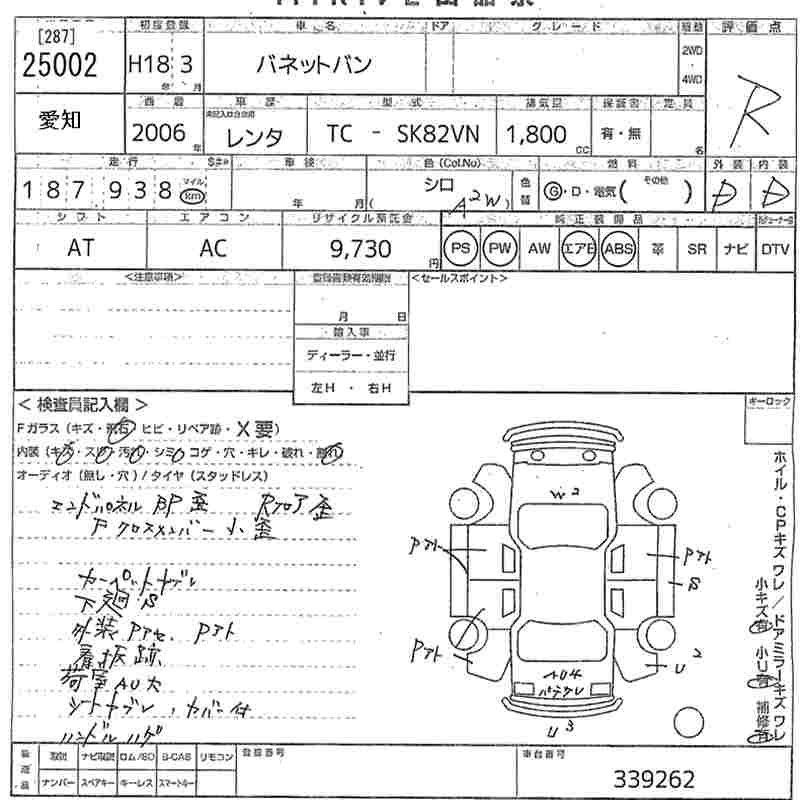 [287]
25002
初度登録
車名
ドア
グレード
評価点
H18 3
年 月
バネットバン
2WD
4WD
R
愛知
西暦
車歴
型式
排気量
保証書
定員
2006 年
レンタ
TC - SK82VN
1,800 cc
有・無
名
走行
車検
色(Col.No)
燃料
外装
内装
187938
マイル
km
年 月
シロ
( A2W )
色替
G・D・電気( その他 )
D
D
シフト
エアコン
リサイクル預託金
純正装備品
AT
AC
9,730 円
PS
PW
AW
エアB
ABS
革
SR
ナビ
DTV
<注意事項>
<セールスポイント>
月 日
輸入車
ディーラー・並行
左H ・ 右H
キーロック
<検査員記入欄>
Fガラス(キズ・飛石 ヒビ・リペア跡・X要)
内装(キズ・スレ・汚れ・シミ・コゲ・穴・キレ・破れ・割れ)
オーディオ(無し・穴)/タイヤ(スタッドレス)
エンドパネル BP歪 Rフロア歪
F クロスメンバー 小歪
カーペットヤブレ
下廻S
外装 Pアセ、Pアト
看板跡
荷室AU大
シートヤブレ、カバー付
ハンドルハゲ
W2
Pアト
Pアト
S
Pアト
U2
U3
ホイル・CPキズ ワレ/ドアミラーキズ ワレ
小キズ有 小U有 補修有
取説
ナビ取説
ロム/SD
B-CAS
リモコン
ナンバー
スペアキー
キーレス
スマートキー
登録番号
車台番号
339262